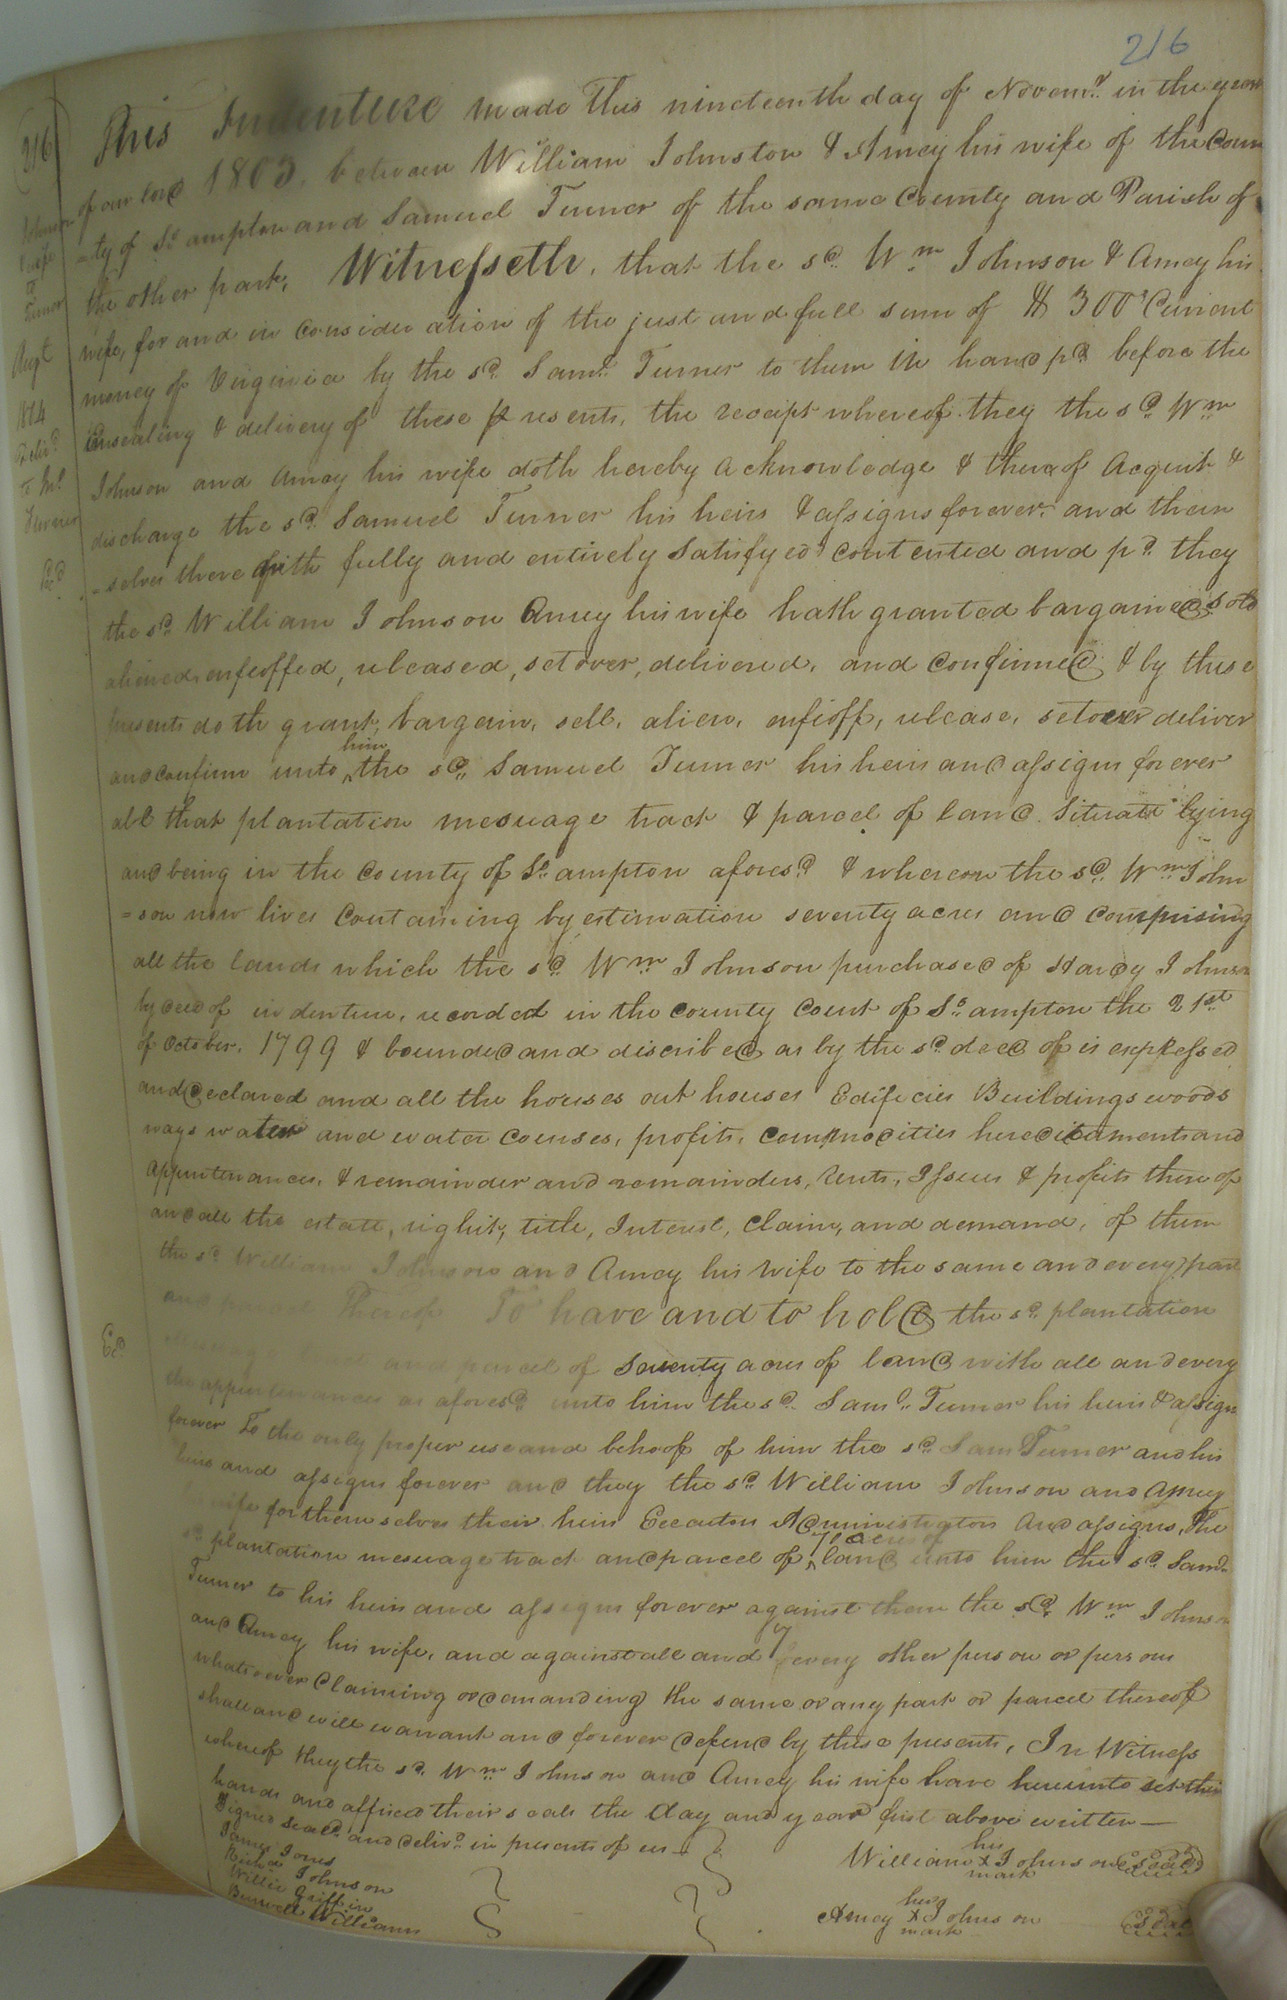 216
216
This Indenture made this nineteenth day of Novemr. in the year
of our lord 1803. between William Johnston & Amey his wife of the Coun
-ty of So.ampton and Samuel Turner of the same County and Parish of
the other part, Witnesseth, that the sd. Wm Johnson & Amey his
wife, for and in consideration of the just and full sum of $ 300 Current
money of Virginia by the sd. Saml. Turner to them in hand pd. before the
Ensealing & delivery of these presents, the receipt whereof they the sd. Wm
Johnson and Amey his wife doth hereby acknowledge & thereof Acquit &
discharge the sd. Samuel Turner his heirs & assigns forever and them
-selves there with fully and entirely satisfyed contented and pd. they
the sd. William Johnson Amey his wife hath granted bargained sold
aliened, enfeoffed, released, set over, delivered, and confirmed & by these
presents doth grant, bargain, sell, alien, enfeoff, release, setover deliver
him
and confirm unto ^ the sd. Samuel Turner his heirs and assigns forever
all that plantation mesuage tract & parcel of land Situate lying
and being in the County of So.ampton aforesd. & whereon the sd. Wm. John
=son now lives Containing by estimation seventy acres and comprising
all the lands which the sd. Wm Johnson purchased of Hardy Johnson
by deed of indenture, recorded in the county Court of So.ampton the 21st
of October. 1799 & bounded and discribed as by the sd. deed of is expressed
and declared and all the houses out houses Edificies Buildings woods
ways waters and water courses, profits, commodities hereditaments and
appurtenances, & remainder and remainders, rents, Issues & profits there of
and all the estate, right, title, Interest, claim, and demand, of them
the sd. William Johnson and Amey his wife to the same and every part
and parcel thereof To have and to hold the sd. plantation
mesuage tract and parcel of seventy acres of land with all and every
the appurtenances as aforesd. unto him the sd. Saml. Turner his heirs & assigns
forever To the only proper use and behoof of him the sd. Sam Turner and his
heirs and assigns forever and they the sd. William Johnson and Amey
wife for themselves their heirs Executors Administrators and assigns, The
70 acres of
sd. plantation mesuage tract and parcel of ^ land unto him the sd. Saml.
Turner to his heirs and assigns forever against them the sd. Wm Johnson
and Amey his wife, and against all and every other person or persons
whatsoever Claiming or demanding the same or any part or parcel thereof
shall and will warrant and forever defend by these presents, In Witness
whereof they the sd. Wm Johnson and Amey his wife have hereunto set their
hands and affixed their seals the day and year first above written —
Signed Seald. and delivd. in presents of us
James Jones
Richd Johnson
Willie Griffin
Burwell Williams
his
William X Johnson Seal
mark
her
Amey X Johnson Seal
mark
Johnson
to
Turner
Augt
1814
Delivd.
to
Turner
Ed.
Ed.